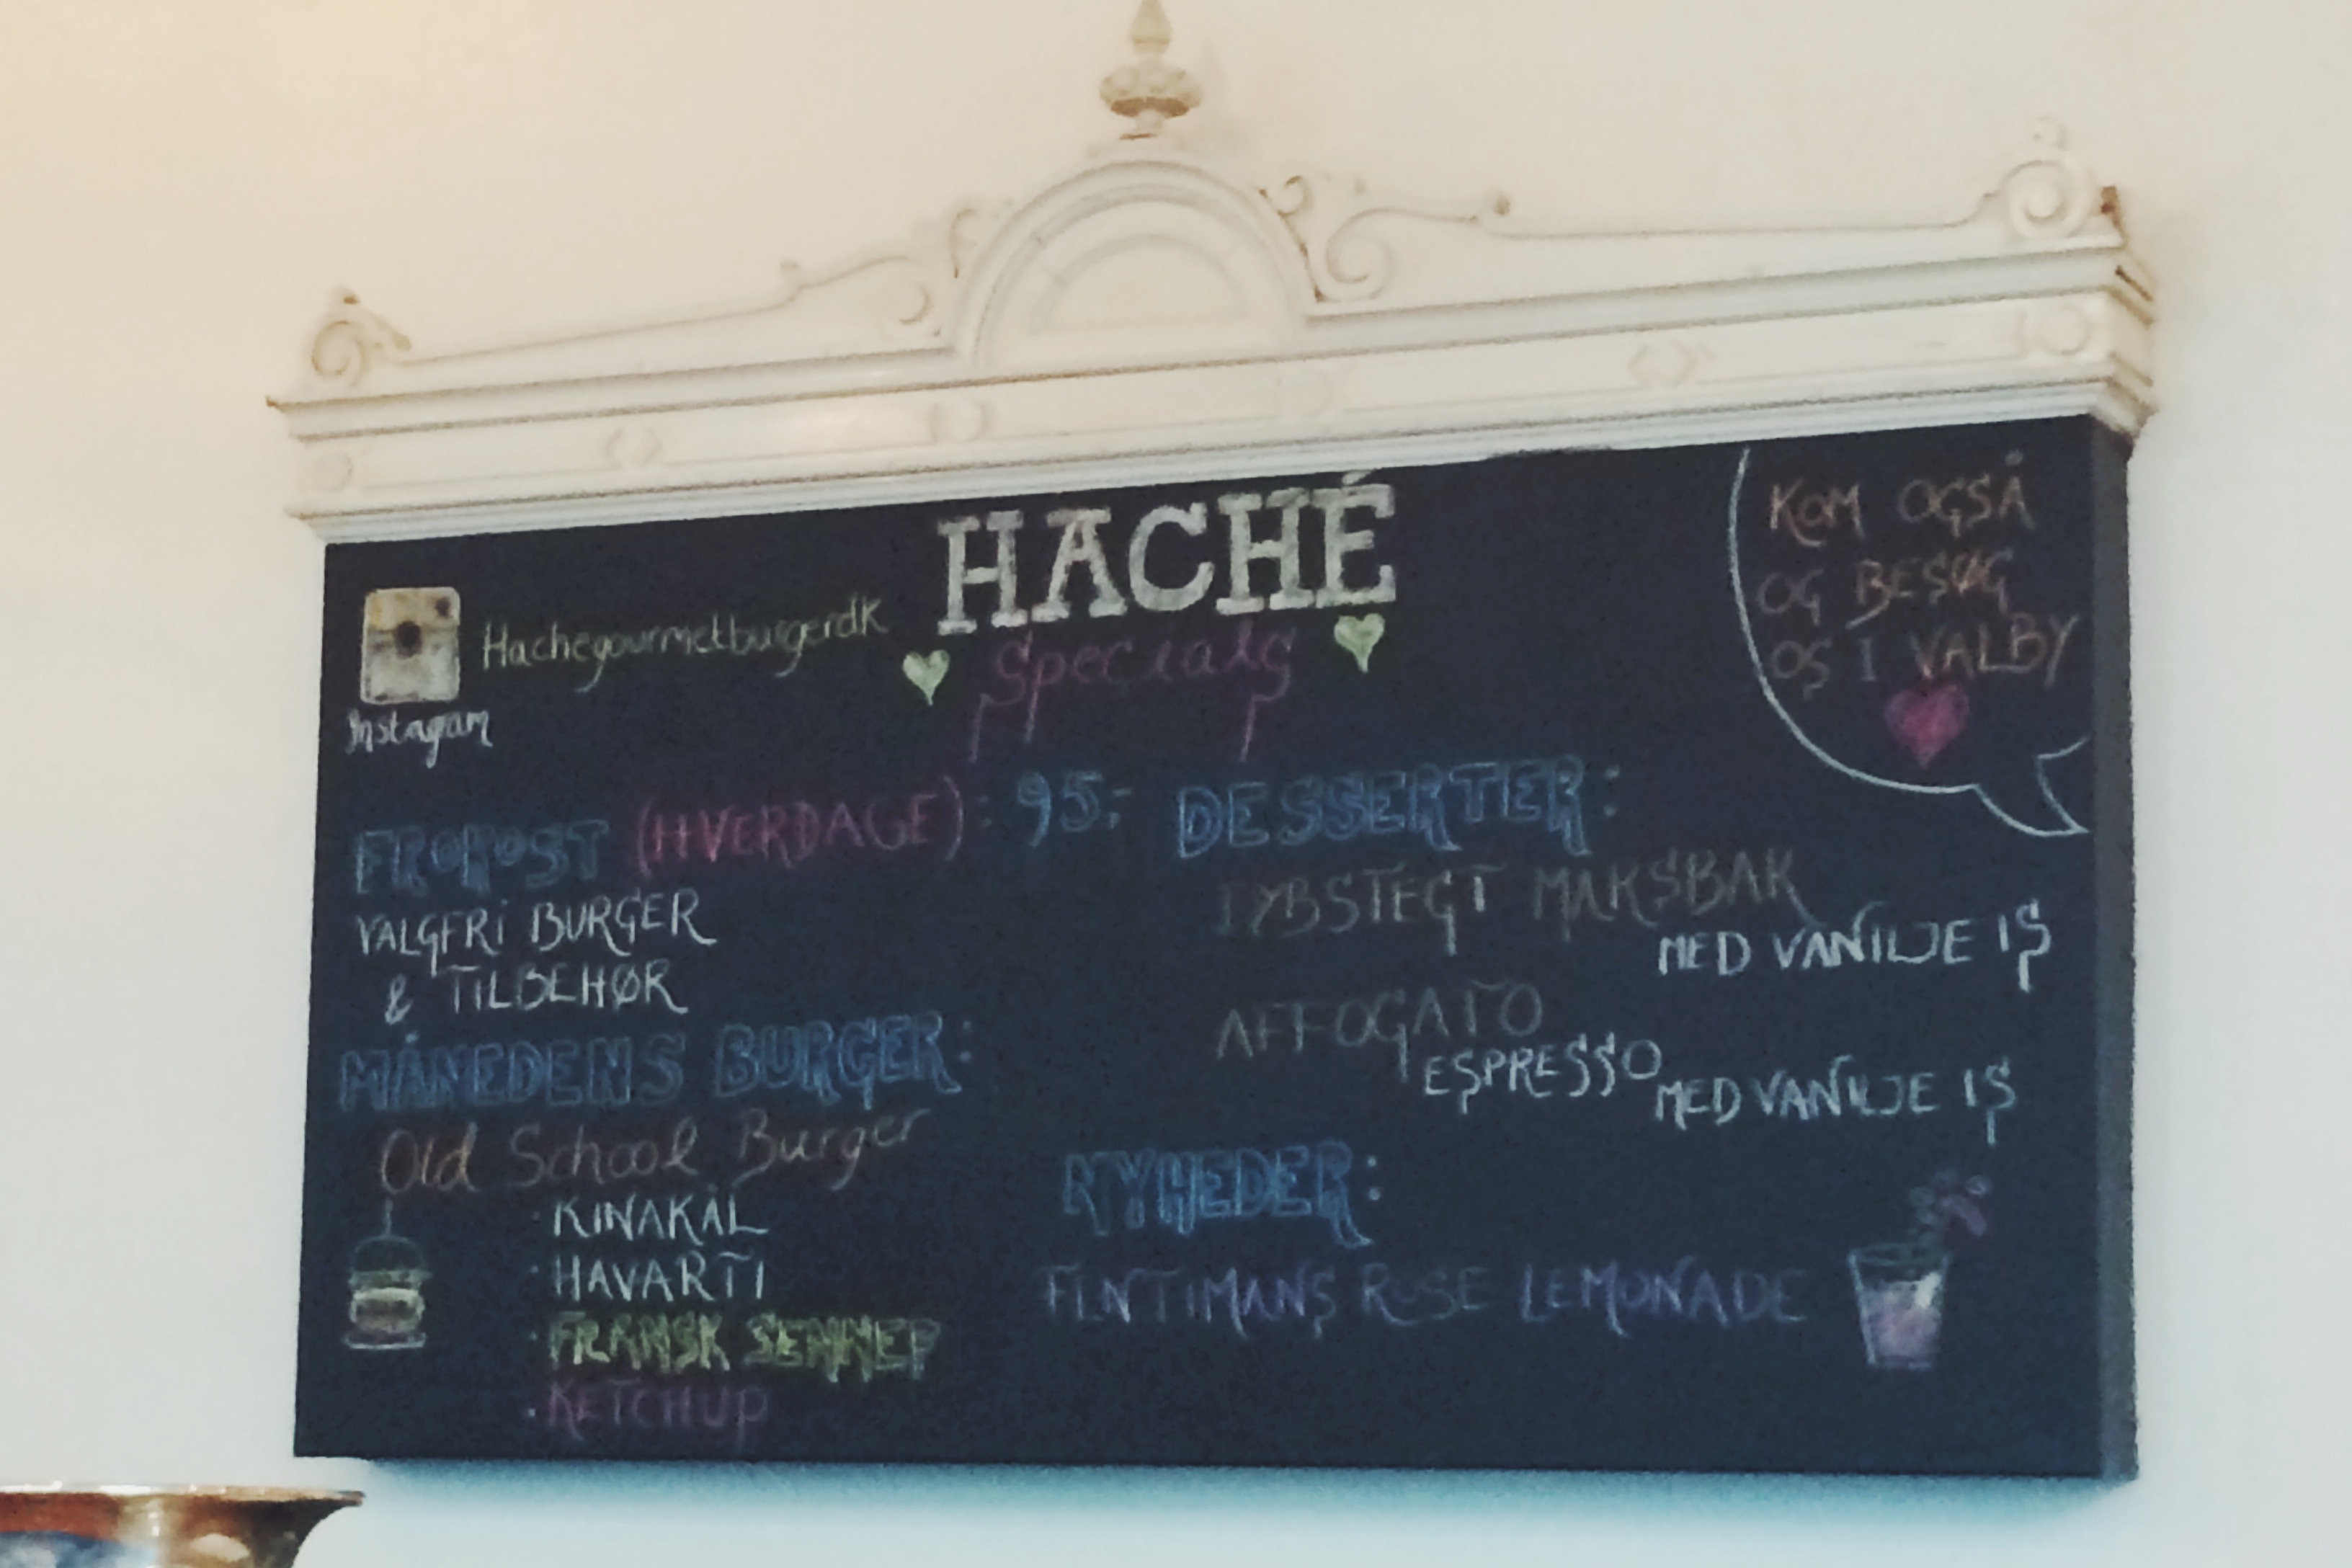 HACHÉ
Specials
Hachegourmetburgerdk
Instagram
KOM OGSÅ
OG BESØG
OS I VALBY
FROKOST (HVERDAGE): 95,-
VALGFRI BURGER
& TILBEHØR
MÅNEDENS BURGER:
Old School Burger
· KINAKÅL
· HAVARTI
· FRANSK SENNEP
· KETCHUP
DESSERTER:
DYBSTEGT MARSBAR
MED VANILJE IS
AFFOGATO
ESPRESSO MED VANILJE IS
NYHEDER:
FENTIMANS ROSE LEMONADE